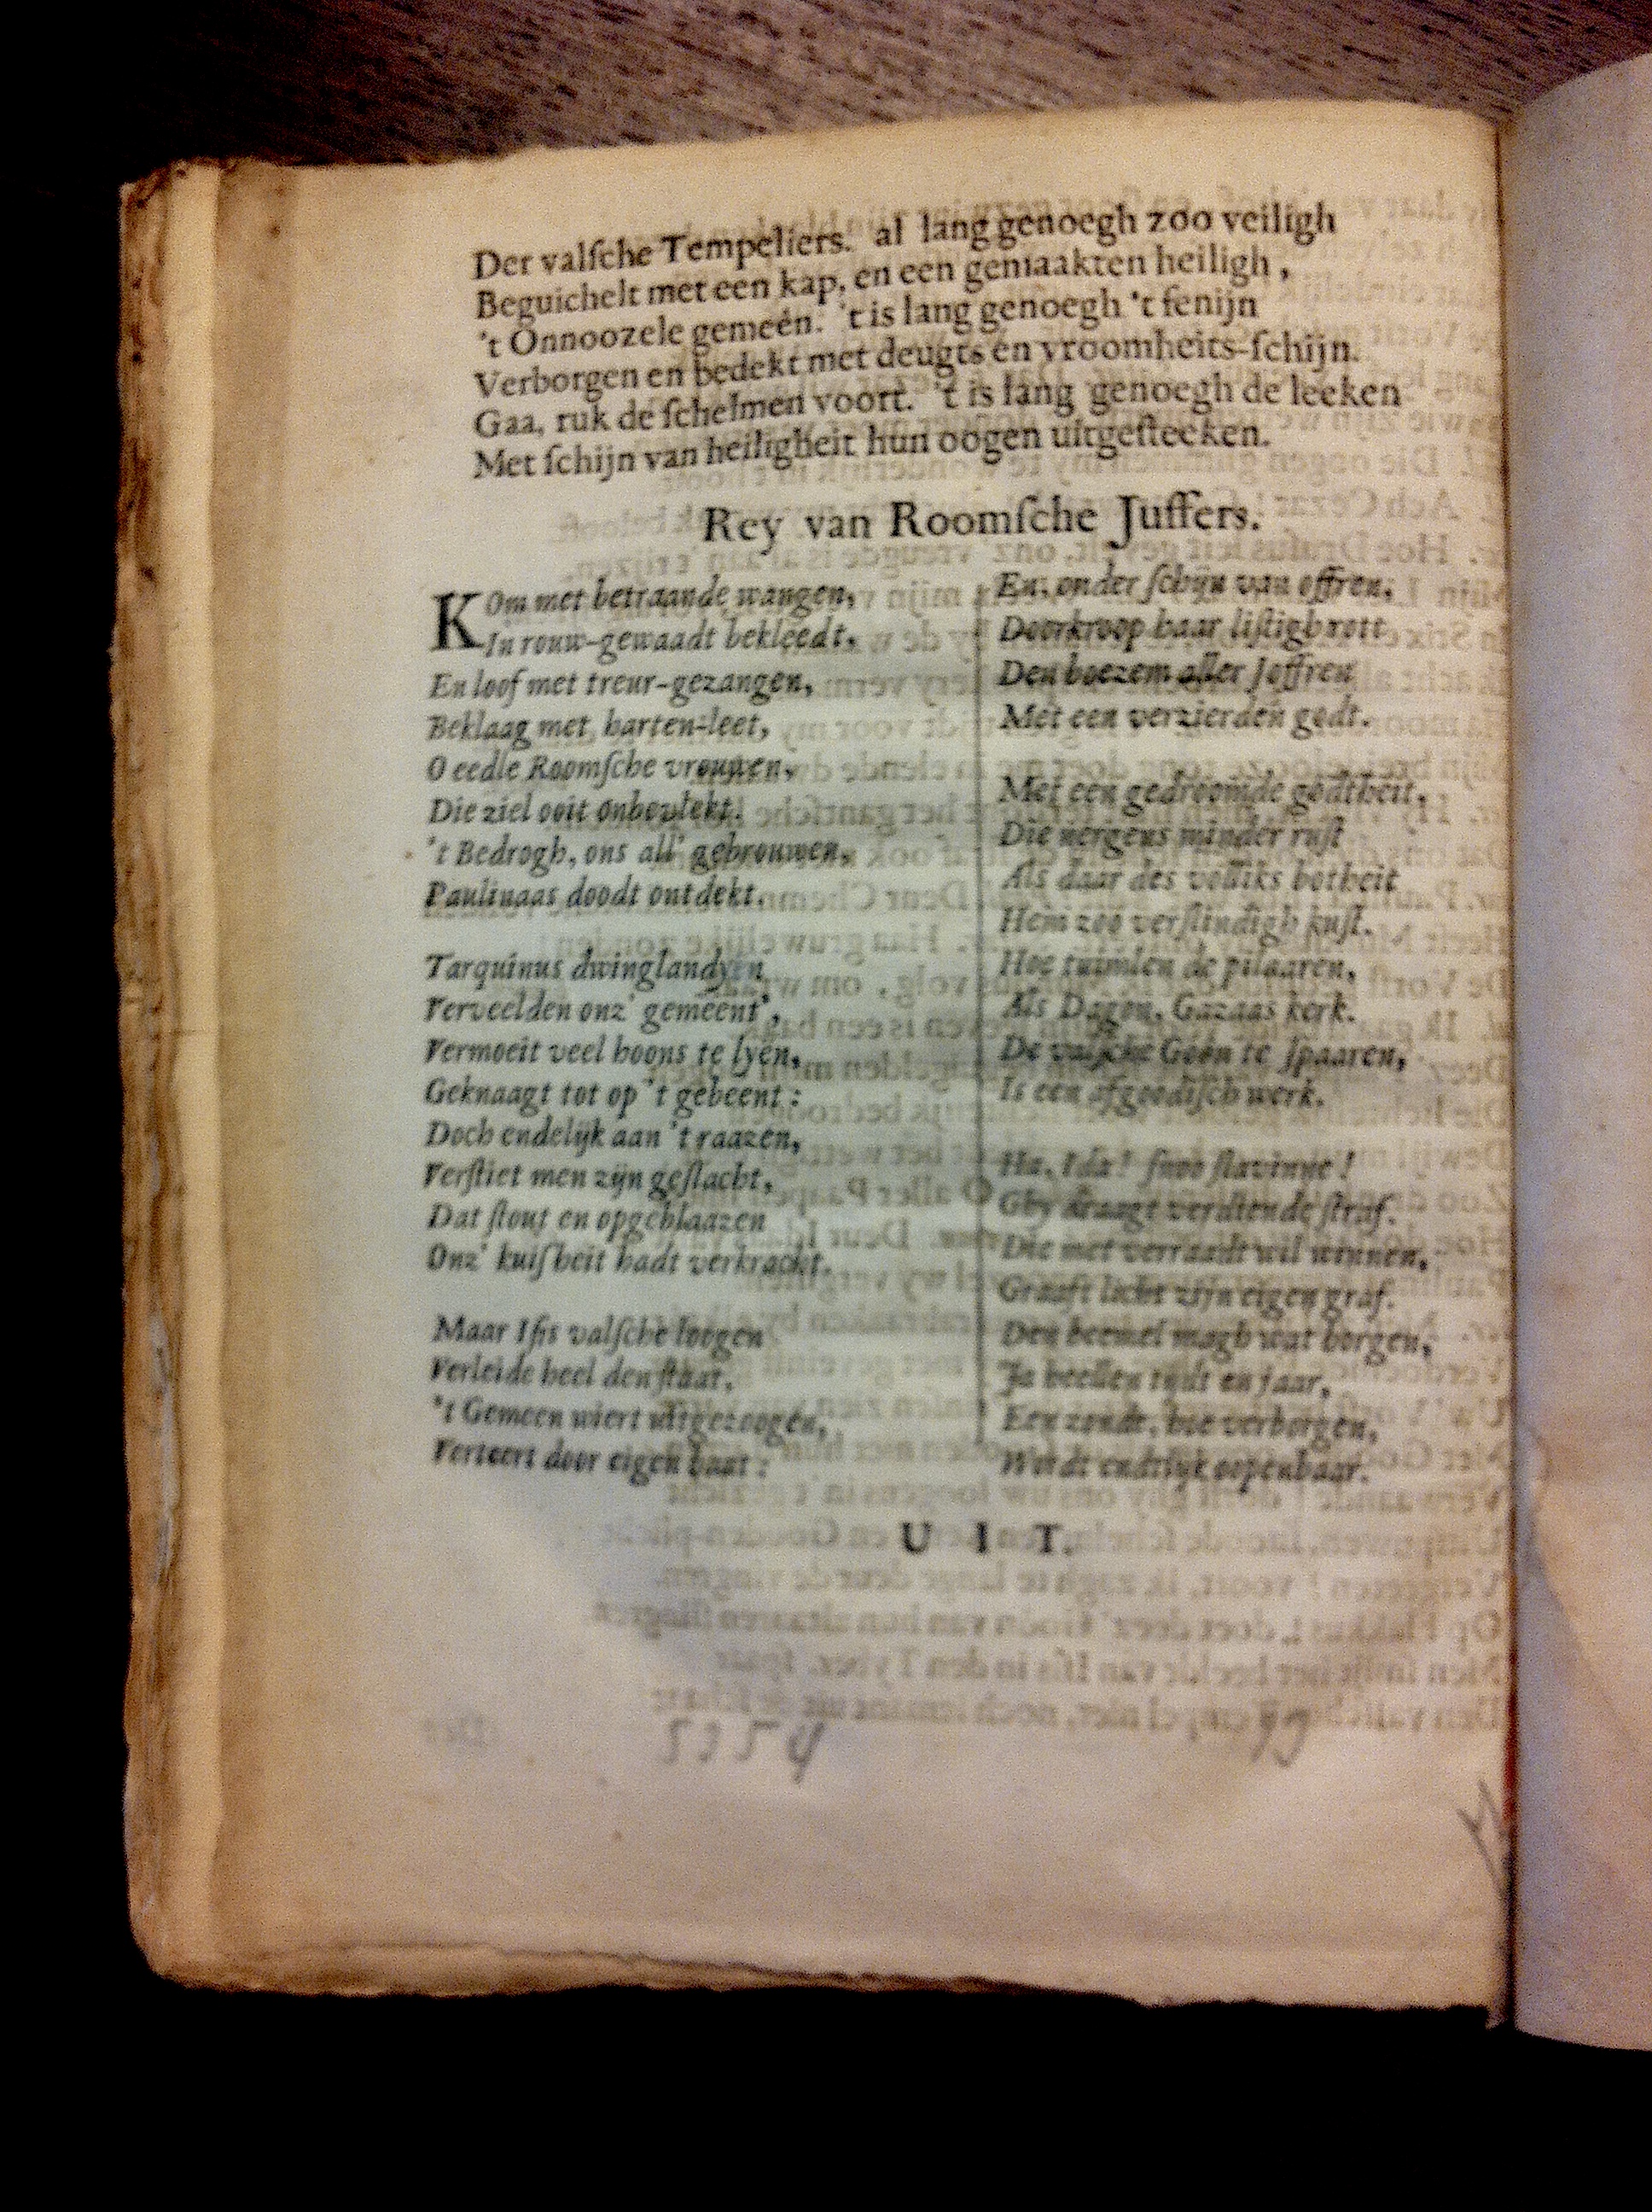 Der valſche Tempeliers. al lang genoegh zoo veiligh
Beguichelt met een kap, en een gemaakten heiligh,
't Onnoozele gemeen. 't is lang genoegh 't fenijn
Verborgen en bedekt met deugts en vroomheits-ſchijn.
Gaa, ruk de ſchelmen voort. 't is lang genoegh de leeken
Met ſchijn van heiligheit hun oogen uitgeſteeken.
Rey van Roomſche Juffers.
KOm met betraande wangen,
In rouw-gewaadt bekleedt,
En loof met treur-gezangen,
Beklaag met harten-leet,
O eedle Roomſche vrouwen,
Die ziel ooit onbevlekt.
't Bedrogh, ons all' gebrouwen,
Paulinaas doodt ontdekt.
Tarquinus dwinglandyen
Verveelden onz' gemeent',
Vermoeit veel hoons te lyen,
Geknaagt tot op 't gebeent:
Doch endelijk aan 't raazen,
Verſtiet men zijn geſlacht,
Dat ſtout en opgeblaazen
Onz' kuiſheit hadt verkracht.
Maar Iſis valſche loogen
Verleide heel den ſtaat.
't Gemeen wiert uitgezoogen,
Verteert door eigen baat:
En, onder ſchijn van offren,
Doorkroop haar liſtigh rott
Den boezem aller Joffren
Met een verzierden godt.
Met een gedroomde godtheit,
Die nergens minder ruſt
Als daar des vollks botheit
Hem zoo verſlindigh kuſt.
Hoe tuimlen de pilaaren,
Als Dagon, Gazaas kerk.
De valſche Goôn te ſpaaren,
Is een afgoodiſch werk.
Ha, Ida! ſnoo ſlavinne!
Ghy draagt verdiende ſtraf.
Die met verraadt wil winnen,
Graaft licht zijn eigen graf.
Den heemel magh wat borgen,
Ja heelen tijdt en jaar,
Een zonde, hoe verborgen,
Wordt endtlijk oopenbaar.
U I T.
5354